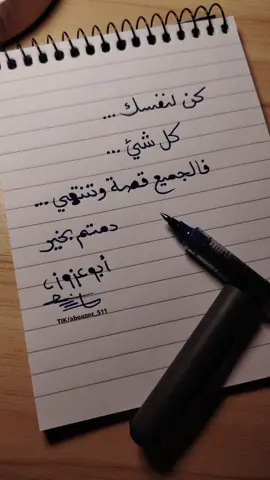 كن لنفسك ...
كل شيء ...
فالجميع قصة وتنتهي ...
دمتم بخير
أبو عزوز
TIK/aboazoz_511